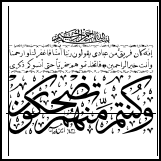 بسم الله الرحمن الرحيم
إنه كان فريق من عبادي يقولون ربنا آمنا فاغفر لنا وارحمنا
وأنت خير الراحمين فاتخذتموهم سخريا حتى أنسوكم ذكري
وكنتم منهم تضحكون